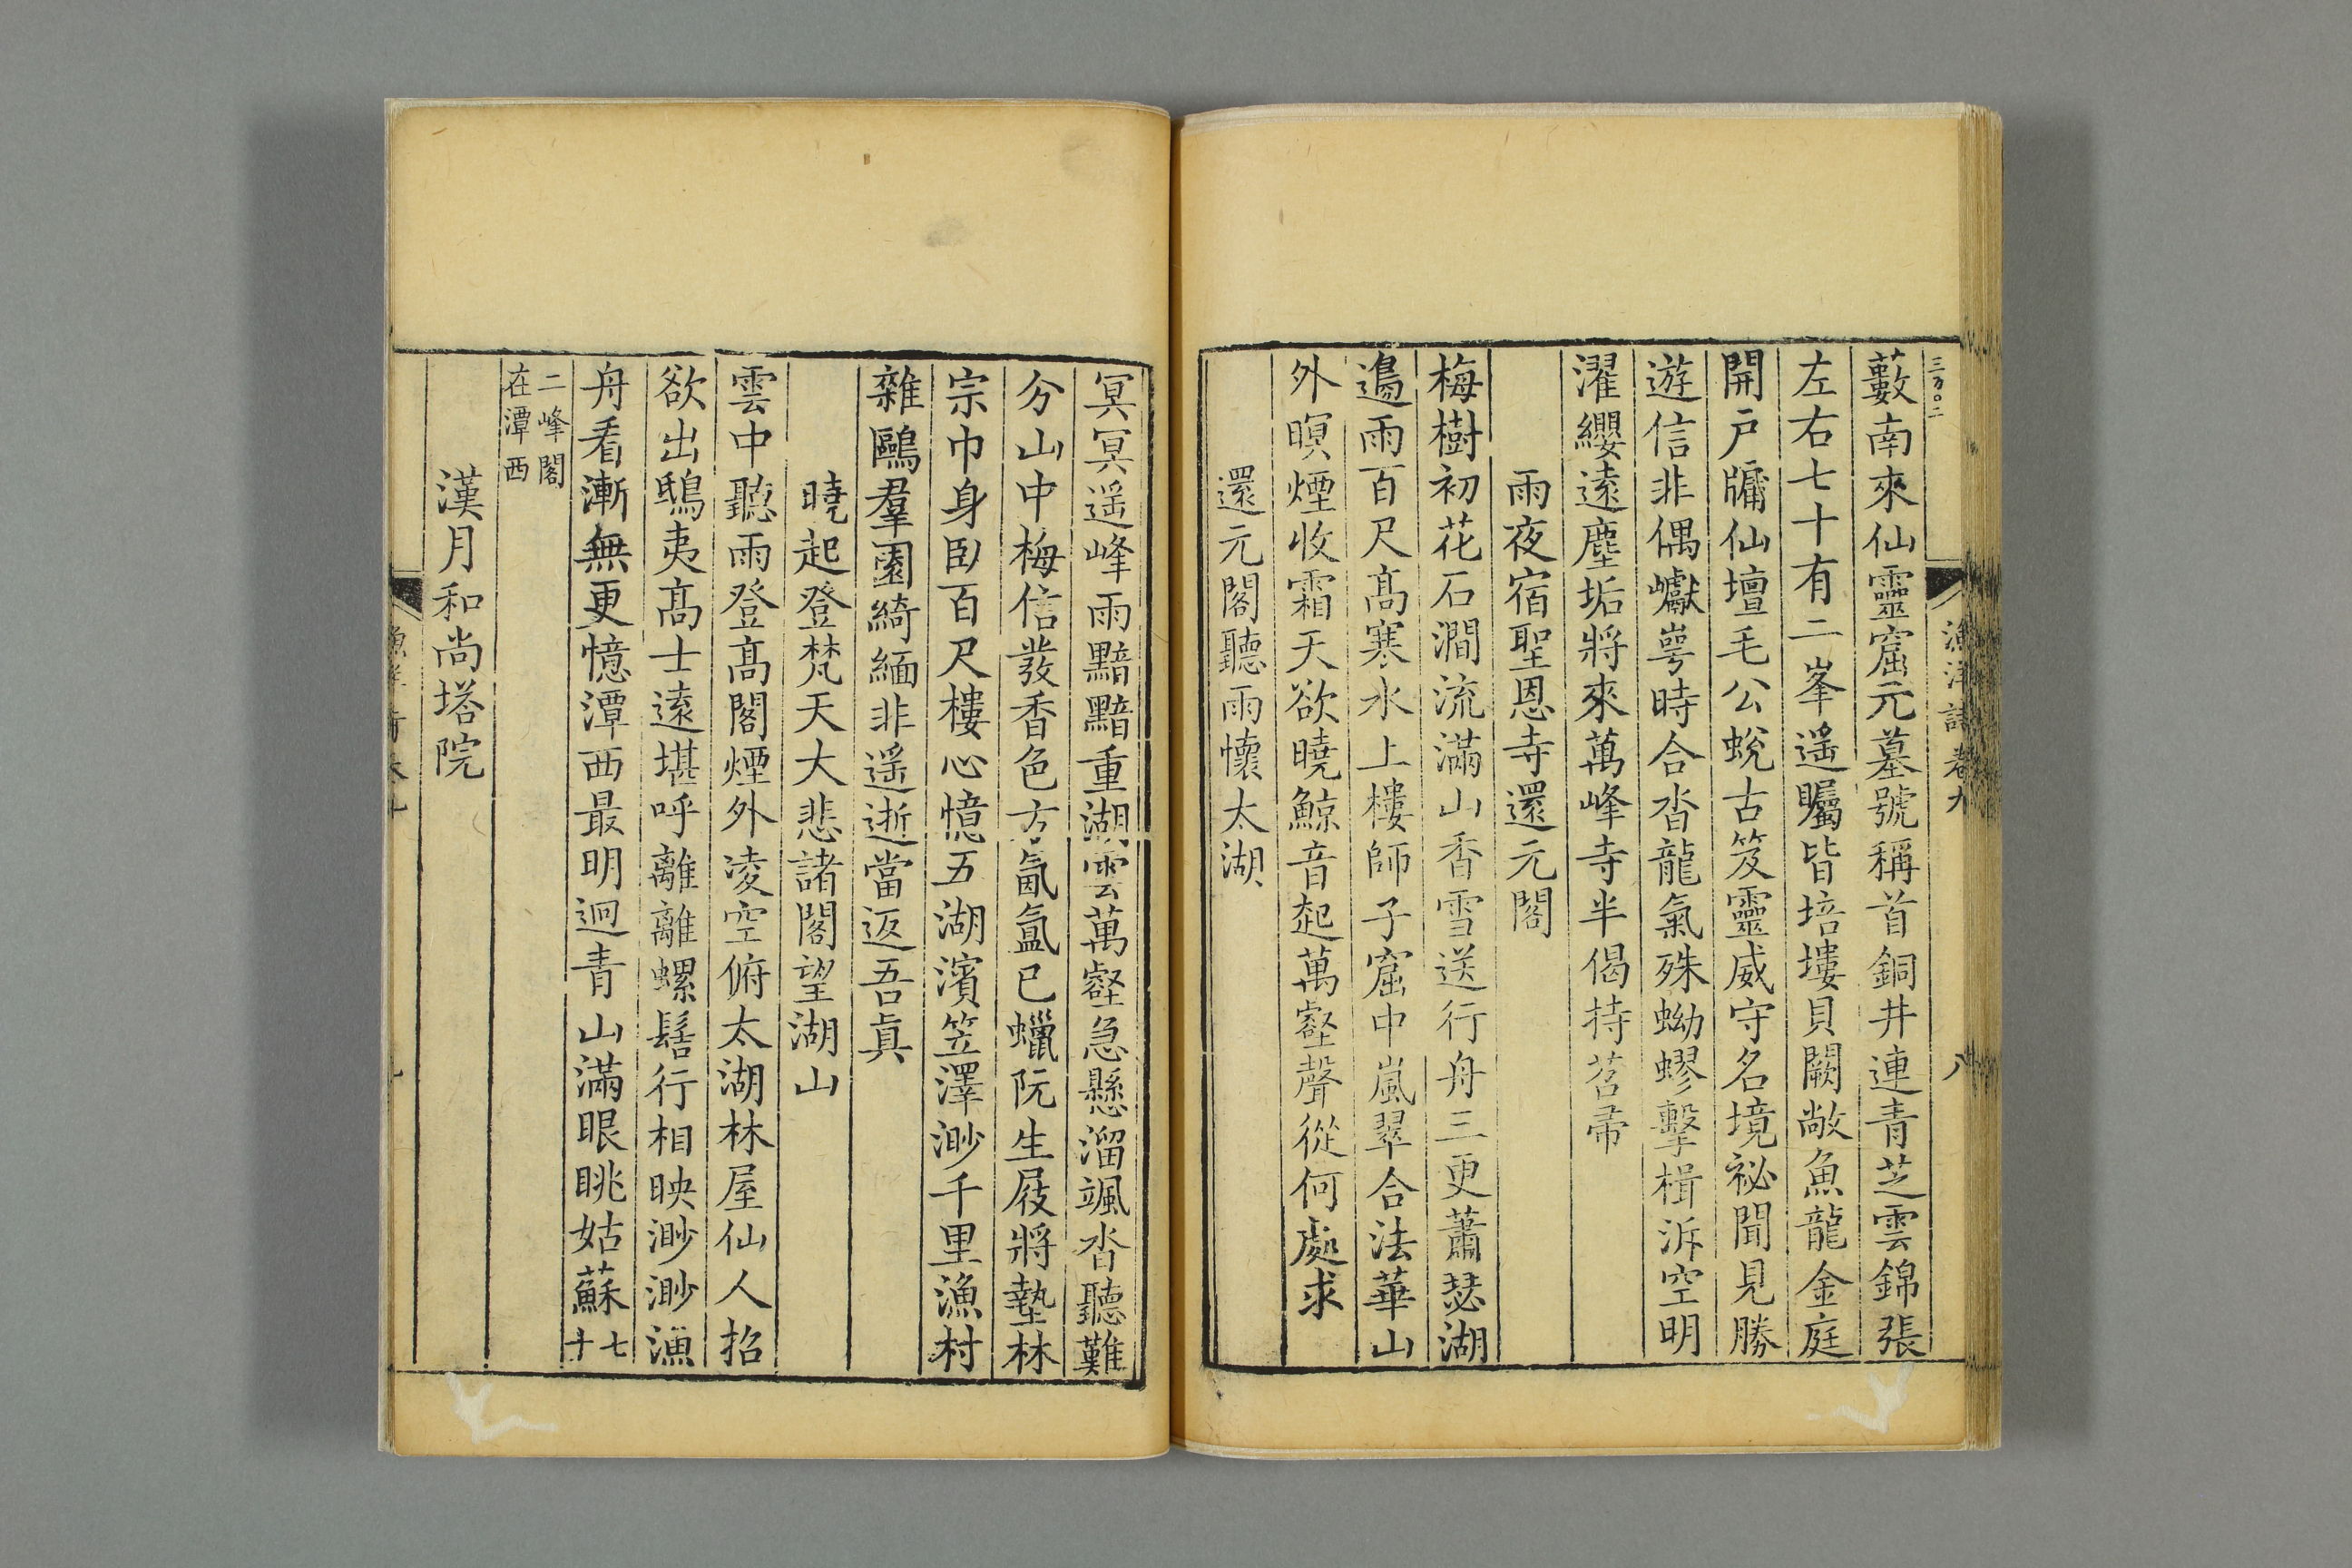 三百〇二
漁洋詩卷九
八
藪南來仙靈窟元墓號稱首銅井連青芝雲錦張
左右七十有二峯遥矚皆培塿貝闕敞魚龍金庭
開戸牗仙壇毛公蛻古笈靈威守名境祕聞見勝
遊信非偶巘崿時合沓龍氣殊蚴蟉擊楫泝空明
濯纓遠塵垢將來萬峰寺半偈持苕帚
雨夜宿聖恩寺還元閣
梅樹初花石澗流滿山香雪送行舟三更蕭瑟湖
邊雨百尺髙寒水上樓師子窟中嵐翠合法華山
外暝煙收霜天欲曉鯨音起萬壑聲從何處求
還元閣聽雨懷太湖
冥冥遥峰雨黯黯重湖雲萬壑急懸溜颯沓聽難
分山中梅信發香色方氤氳已蠟阮生屐將墊林
宗巾身臥百尺樓心憶五湖濱笠澤渺千里漁村
雜鷗羣園綺緬非遥逝當返吾眞
曉起登梵天大悲諸閣望湖山
雲中聽雨登髙閣煙外凌空俯太湖林屋仙人招
欲出鴟夷髙士遠堪呼離離螺髻行相映渺渺漁
舟看漸無更憶潭西最明迥青山滿眼眺姑蘇七十
二峰閣
在潭西
漢月和尚塔院